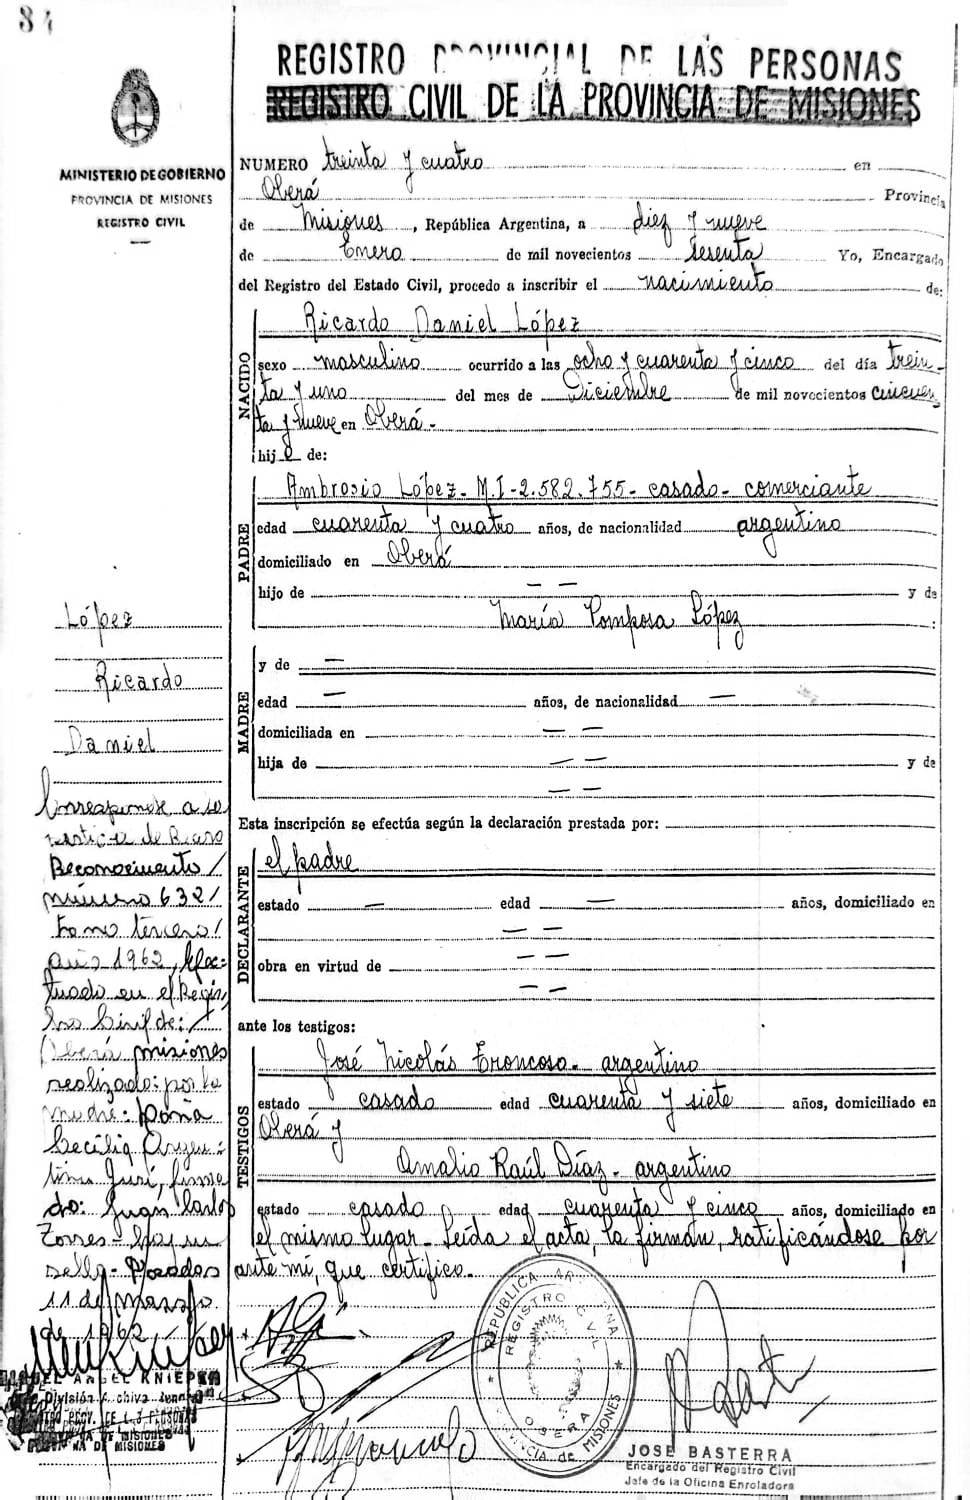 34
REGISTRO PROVINCIAL DE LAS PERSONAS
REGISTRO CIVIL DE LA PROVINCIA DE MISIONES
MINISTERIO DE GOBIERNO
PROVINCIA DE MISIONES
REGISTRO CIVIL
NUMERO treinta y cuatro en
Oberá Provincia
de Misiones, República Argentina, a diez y nueve
de Enero de mil novecientos sesenta Yo, Encargado
del Registro del Estado Civil, procedo a inscribir el nacimiento de:
NACIDO
Ricardo Daniel López
sexo masculino ocurrido a las ocho y cuarenta y cinco del día trein-
ta y uno del mes de Diciembre de mil novecientos cincuen
ta y nueve en Oberá.-
hij o de:
PADRE
Ambrosio López- M.I-2.582.755- casado- comerciante
edad cuarenta y cuatro años, de nacionalidad argentino
domiciliado en Oberá
hijo de — — y de
María Pomposa López :
MADRE
y de —
edad — años, de nacionalidad —
domiciliada en — —
hija de — — y de
— —
Esta inscripción se efectúa según la declaración prestada por:
DECLARANTE
el padre
estado — edad — años, domiciliado en
— —
obra en virtud de — —
— —
ante los testigos:
TESTIGOS
José Nicolás Troncoso- argentino
estado casado edad cuarenta y siete años, domiciliado en
Oberá y
Amalio Raúl Díaz- argentino
estado casado edad cuarenta y cinco años, domiciliado en
el mismo lugar- Leída el acta, la firman, ratificándose por
ante mí, que certifico.-
López
Ricardo
Daniel
Corresponde a
de
Reconocimiento/
número 632/
tomo tercero/
año 1962, efec:
tuado en el Regis
tro Civil de:
Oberá misiones
realizado: por la
madre: Doña
Cecilia Argen:
tina Juri, firma
do: Juan Carlos
Torres- Hay un
sello- Posadas
11 de marzo
de 1962
MIGUEL ANGEL KNIEPER
División Archivo
REGISTRO PROV. DE LAS PERSONAS
PROVINCIA DE MISIONES
REPUBLICA ARGENTINA
REGISTRO CIVIL
OBERA
PROVINCIA de MISIONES
JOSE BASTERRA
Encargado del Registro Civil
Jefe de la Oficina Enroladora